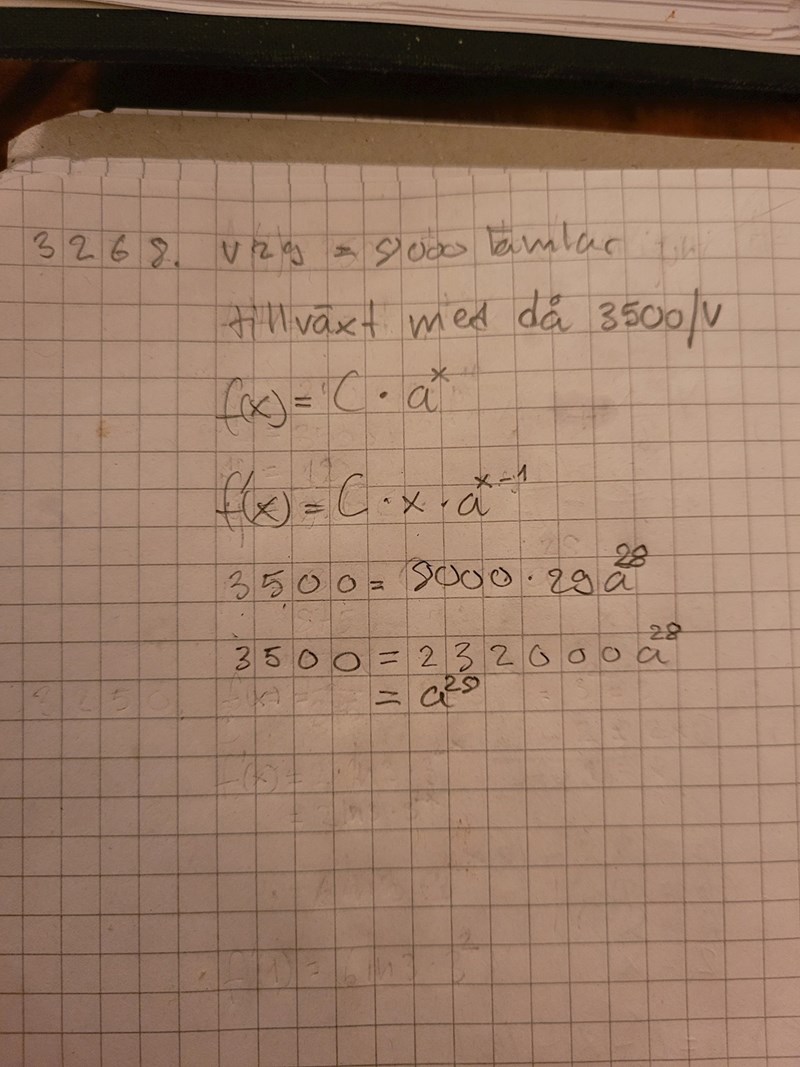 3268. v29 = 8000 lämlar
tillväxt med då 3500/v
f(x) = C · a^x
f'(x) = C · x · a^x-1
3500 = 8000 · 29 a^28
3500 = 232000 a^28
= a^28